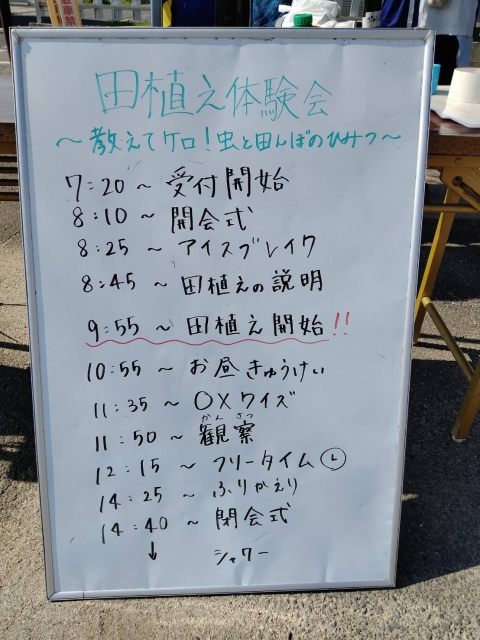 田植え体験会
～教えてケロ!虫と田んぼのひみつ～
7:20～受付開始
8:10～開会式
8:25～アイスブレイク
8:45～田植えの説明
9:55～田植え開始!!
10:55～お昼きゅうけい
11:35～○×クイズ
かんさつ
11:50～観察
12:15～フリータイム
14:25～ふりかえり
14:40～閉会式
↓シャワー